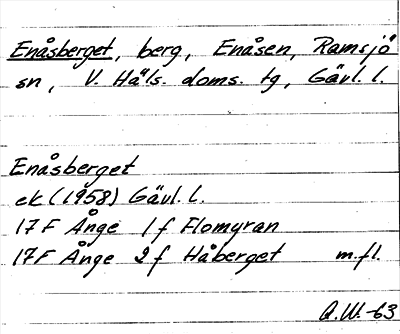 Enåsberget, berg, Enåsen, Ramsjö
sn, V. Häls. doms. tg, Gävl. l.
Enåsberget
ek (1958) Gävl. l.
17F Ånge 1f Flomyran
17F Ånge 2f Håberget m.fl.
A.W.-63